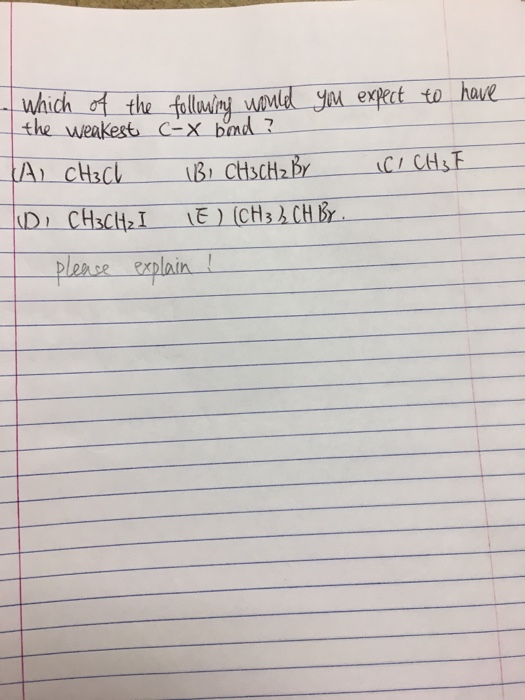 Which of the following would you expect to have
the weakest C-X bond ?
(A) CH3Cl (B) CH3CH2Br (C) CH3F
(D) CH3CH2I (E) (CH3)2CHBr.
please explain !